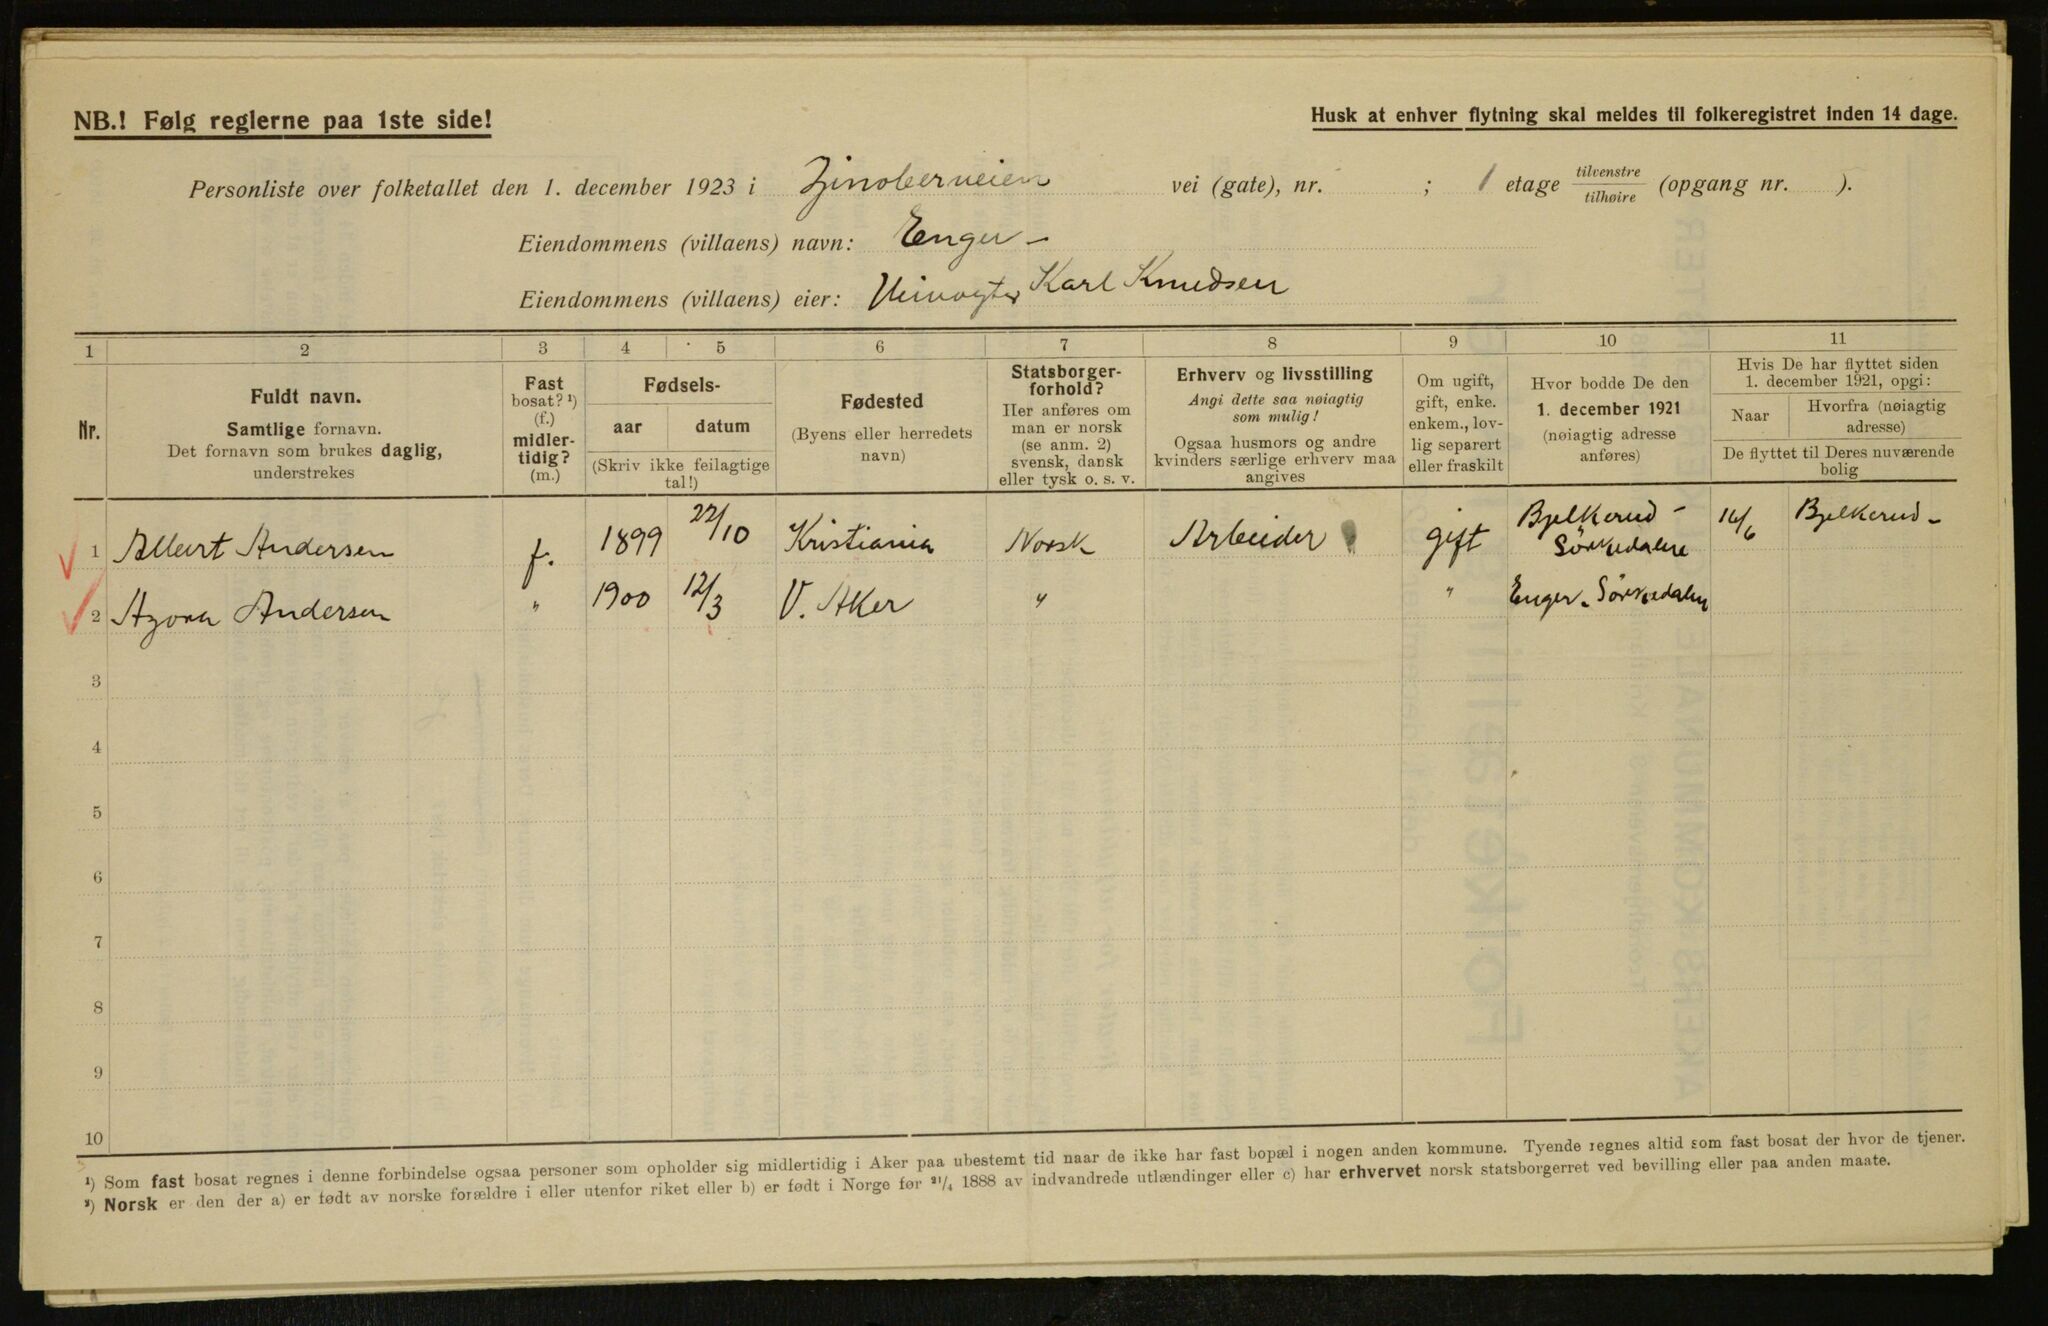 NB.! Følg reglerne paa 1ste side!
Husk at enhver flytning skal meldes til folkeregistret inden 14 dage.
Personliste over folketallet den 1. december 1923 i Zinoberveien vei (gate), nr. ; 1 etage tilvenstre / tilhøire (opgang nr. ).
Eiendommens (villaens) navn: Enger -
Eiendommens (villaens) eier: Veivogter Karl Knudsen
1 2 3 4 5 6 7 8 9 10 11
Nr.
Fuldt navn.
Samtlige fornavn.
Det fornavn som brukes daglig,
understrekes
Fast
bosat? ¹)
(f.)
midler-
tidig?
(m.)
Fødsels-
aar datum
(Skriv ikke feilagtige
tal!)
Fødested
(Byens eller herredets
navn)
Statsborger-
forhold?
Her anføres om
man er norsk
(se anm. 2)
svensk, dansk
eller tysk o. s. v.
Erhverv og livsstilling
Angi dette saa nøiagtig
som mulig!
Ogsaa husmors og andre
kvinders særlige erhverv maa
angives
Om ugift,
gift, enke.
enkem., lov-
lig separert
eller fraskilt
Hvor bodde De den
1. december 1921
(nøiagtig adresse
anføres)
Hvis De har flyttet siden
1. december 1921, opgi:
Naar Hvorfra (nøiagtig
adresse)
De flyttet til Deres nuværende
bolig
1 Albert Andersen f. 1899 22/10 Kristiania Norsk Arbeider gift Bjelkerud - Sørkedalen 16/6 Bjelkerud -
2 Andersen " 1900 12/3 V. Aker " " Enger - Sørkedalen
3
4
5
6
7
8
9
10
¹) Som fast bosat regnes i denne forbindelse ogsaa personer som opholder sig midlertidig i Aker paa ubestemt tid naar de ikke har fast bopæl i nogen anden kommune. Tyende regnes altid som fast bosat der hvor de tjener.
²) Norsk er den der a) er født av norske forældre i eller utenfor riket eller b) er født i Norge før ²¹/₄ 1888 av indvandrede utlændinger eller c) har erhvervet norsk statsborgerret ved bevilling eller paa anden maate.